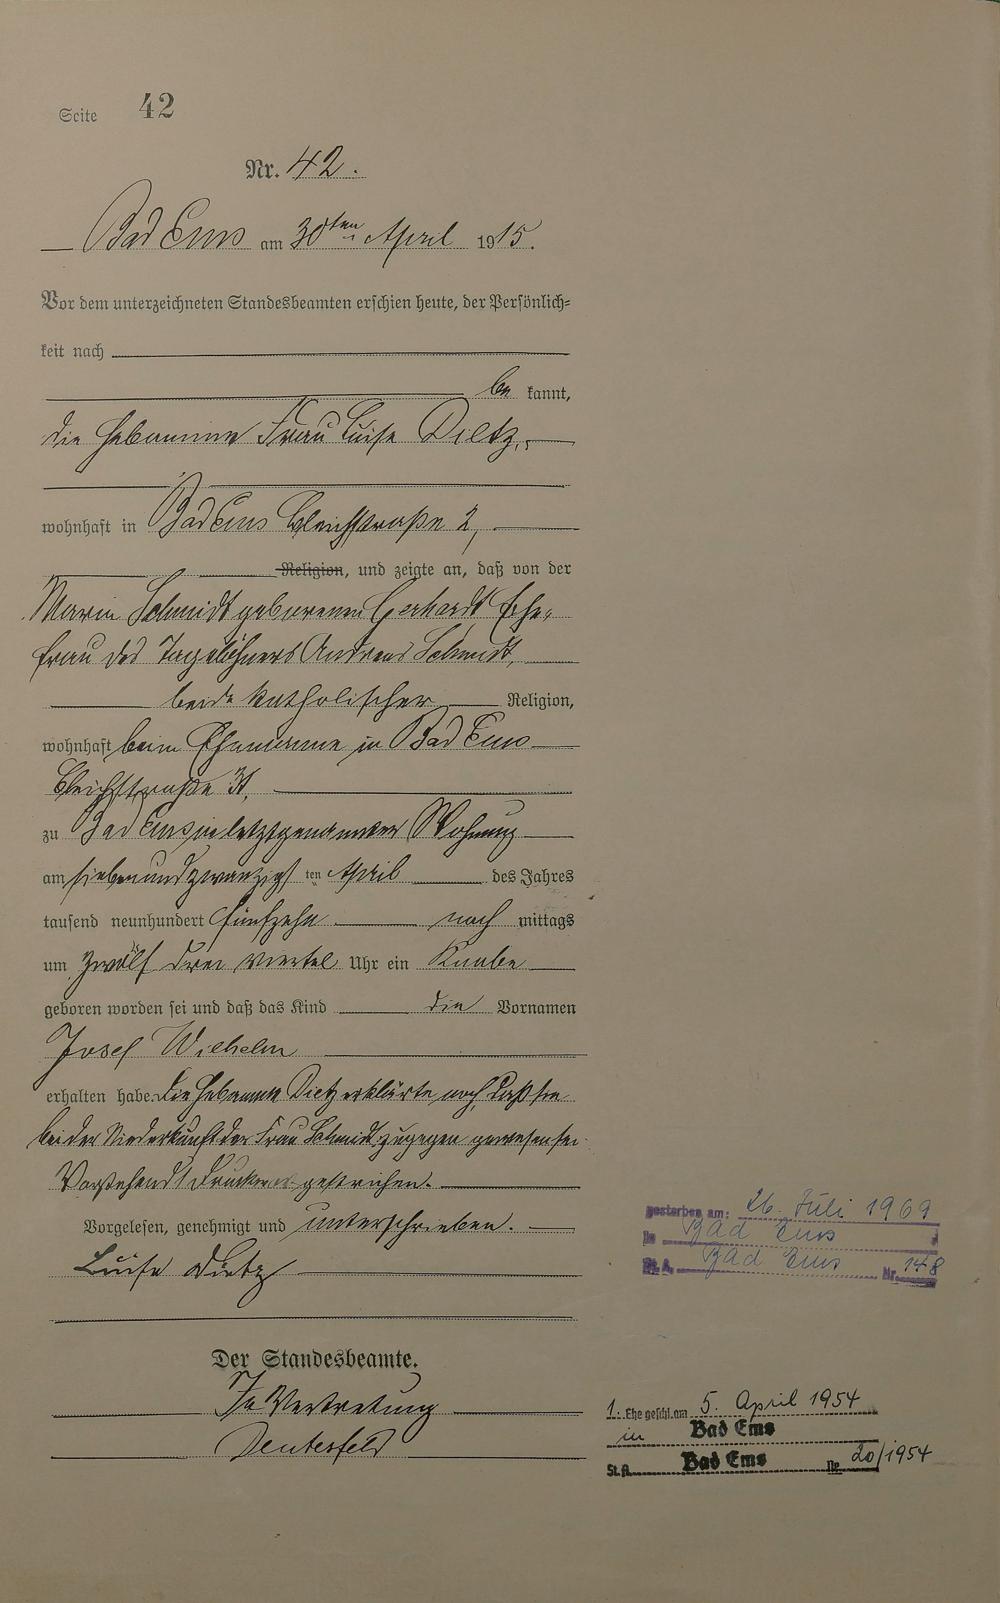 Seite 42
Nr. 42.
Bad Ems am 30ten April 1915.
Vor dem unterzeichneten Standesbeamten erschien heute, der Persönlich-
keit nach
be kannt,
die Hebamme Frau Luise Dietz,
wohnhaft in Bad Ems Bleichstraße 2,
Religion, und zeigte an, daß von der
Maria Schmidt geborenen Gerhardt Ehe-
frau des Tagelöhners Andreas Schmidt,
beide katholischer Religion,
wohnhaft beim Ehemanne in Bad Ems
Bleichstraße 31,
zu Bad Ems in letztgenannter Wohnung
am siebenundzwanzigsten April des Jahres
tausend neunhundert fünfzehn nach mittags
um zwölf drei viertel Uhr ein Knabe
geboren worden sei und daß das Kind die Vornamen
Josef Wilhelm
erhalten habe. Die Hebamme Dietz erklärte noch, daß sie
bei der Niederkunft der Frau Schmidt zugegen gewesen sei.
Vorstehend 1 Druckwort gestrichen.
Vorgelesen, genehmigt und unterschrieben.
Luise Dietz
Der Standesbeamte.
In Vertretung
gestorben am: 26. Juli 1969
in Bad Ems
St.A. Bad Ems Nr. 148
1. Ehe geschl. am 5. April 1954
in Bad Ems
St.A. Bad Ems Nr. 20/1954